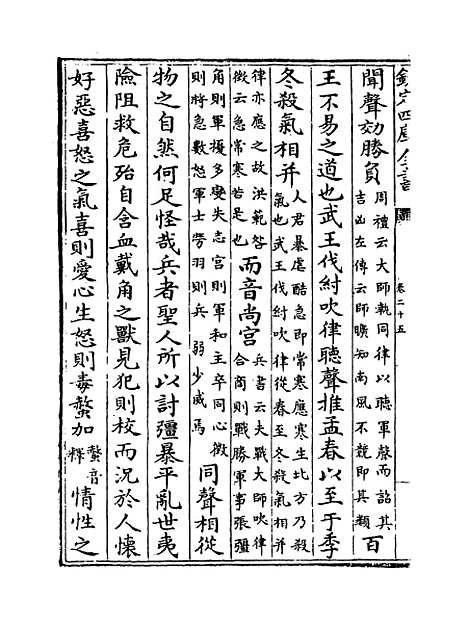 欽定四庫全書
卷二十五
聞聲効勝負
周禮云大師執同律以聽軍聲而詔其
吉凶左傳云師曠知南風不競即其類
百
王不易之道也武王伐紂吹律聽聲推孟春以至于季
冬殺氣相并
人君暴虐酷急即常寒應寒生北方乃殺
氣也武王伐紂吹律從春至冬殺氣相并
律亦應之故洪範咎
徵云急常寒若是也
而音尚宫
兵書云夫戰大師吹律
合商則戰勝軍事張彊
角則軍擾多變失志宫則軍和主卒同心徵
則將急數怒軍士勞羽則兵弱少威焉
同聲相從
物之自然何足怪哉兵者聖人所以討彊暴平亂世夷
險阻救危殆自含血戴角之獸見犯則校而況於人懷
好惡喜怒之氣喜則愛心生怒則毒螫加
螫音
釋
情性之